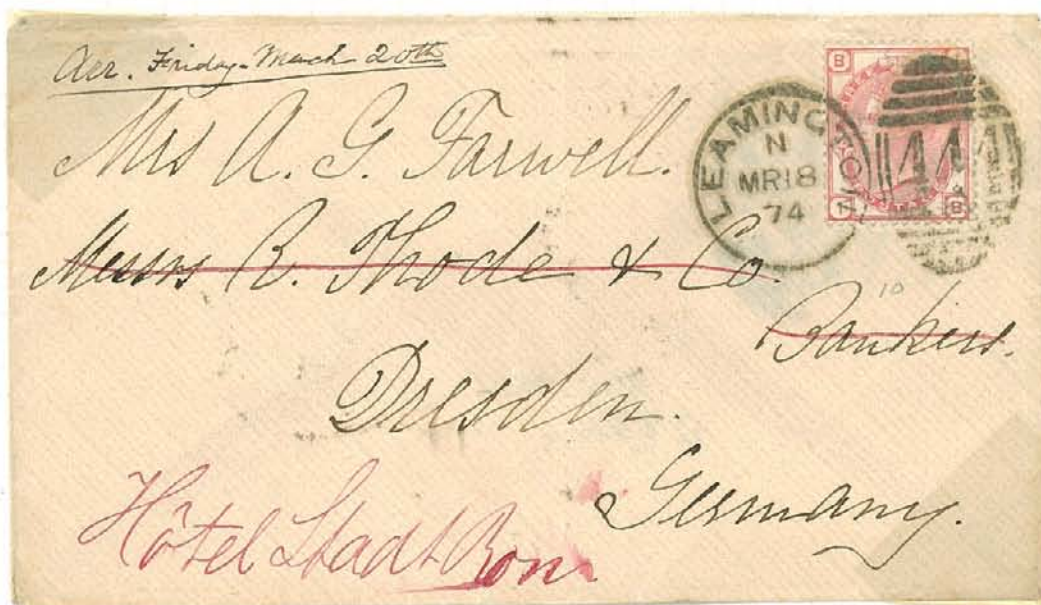 Arr. Friday March 20th
Mrs A. G. Farwell.
Messrs R. Thode & Co.
Bankers.
Dresden.
Germany.
Hôtel Stadt Rom
LEAMINGTON
N
MR 18
74
B
I B
10